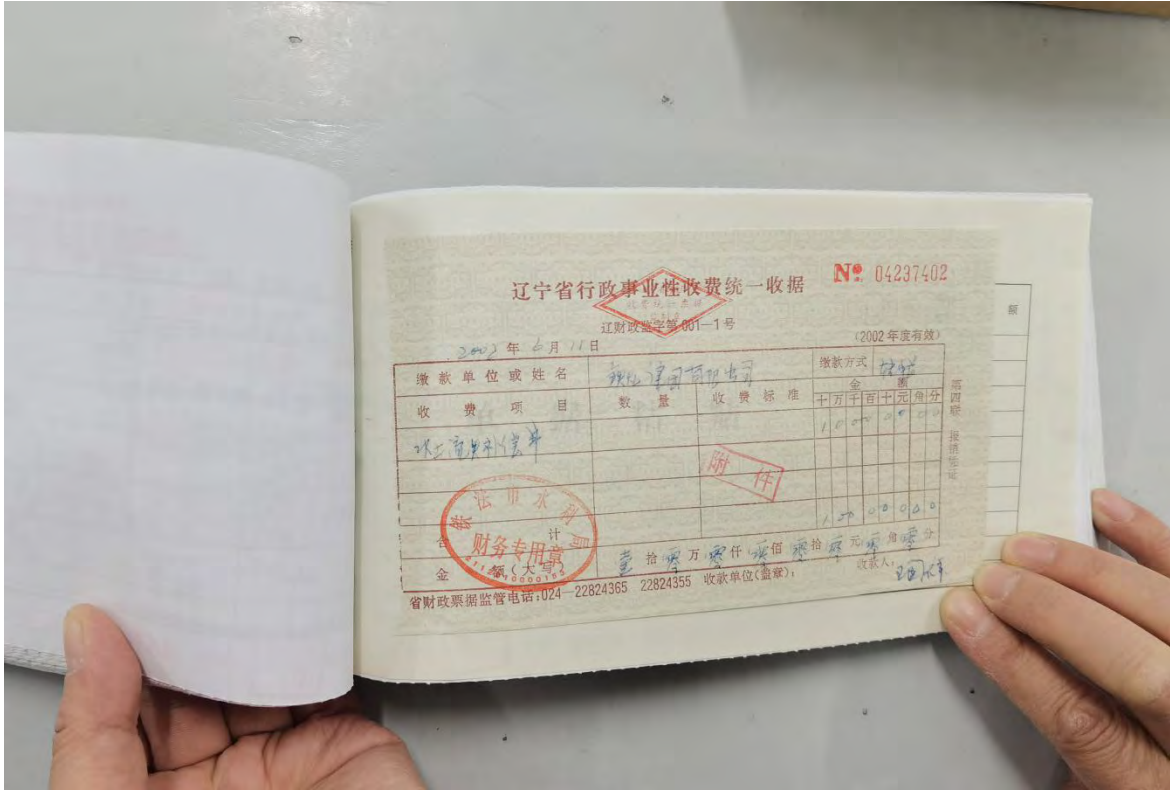 辽宁省行政事业性收费统一收据
№ 04237402
辽财政监字第001—1号
2002年6月11日
(2002年度有效)
缴款单位或姓名
有限公司
缴款方式
收费项目
数量
收费标准
金额
十万千百十元角分
1 0 0 0 0 0 0 0
水土流失补偿费
附件
合计
1 0 0 0 0 0 0 0
金额(大写)
壹拾零万零仟零佰零拾零元零角零分
铁法市水利局
财务专用章
省财政票据监管电话:024—22824365 22824355
收款单位(盖章):
收款人:
第四联 报销凭证
额